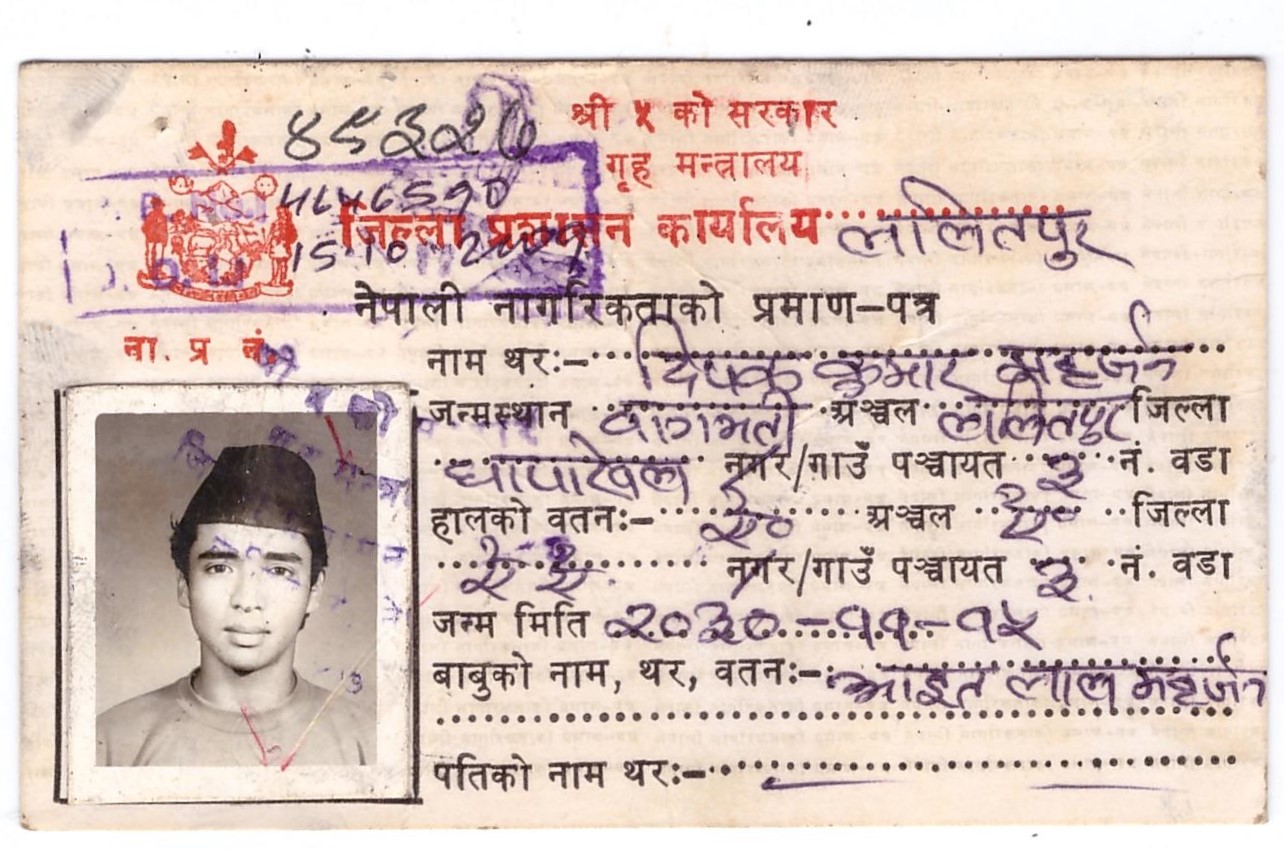 श्री ५ को सरकार
गृह मन्त्रालय
जिल्ला प्रशासन कार्यालय ललितपुर
15 10
नेपाली नागरिकताको प्रमाण-पत्र
ना. प्र. नं.
नाम थरः- दिपक कुमार महर्जन
जन्मस्थान बागमती अञ्चल ललितपुर जिल्ला
धापाखेल नगर/गाउँ पञ्चायत ३ नं. वडा
हालको वतनः- ऐ० अञ्चल ऐ० जिल्ला
ऐ ऐ नगर/गाउँ पञ्चायत ३ नं. वडा
जन्म मिति २०३०-११-१५
बाबुको नाम, थर, वतनः- आइत लाल महर्जन
पतिको नाम थरः-